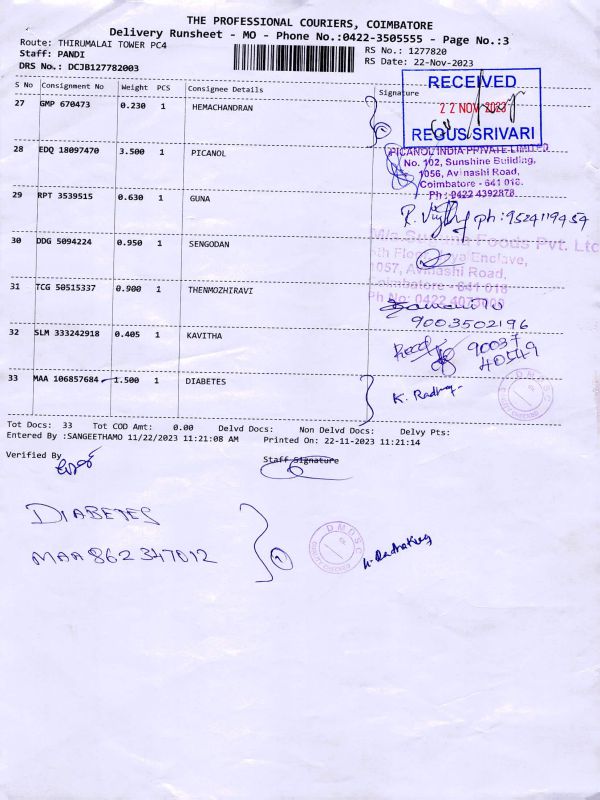 THE PROFESSIONAL COURIERS, COIMBATORE
Delivery Runsheet - MO - Phone No.:0422-3505555 - Page No.:3
Route: THIRUMALAI TOWER PC4
RS No.: 1277820
Staff: PANDI
RS Date: 22-Nov-2023
DRS No.: DCJB127782003
S No Consignment No Weight PCS Consignee Details Signature
RECEIVED
22 NOV 2023
REGUS SRIVARI
27 GMP 670473 0.230 1 HEMACHANDRAN
28 EDQ 18097470 3.500 1 PICANOL
PICANOL INDIA PRIVATE LIMITED
No. 102, Sunshine Building,
1056, Avinashi Road,
Coimbatore - 641 018.
Ph : 0422 4392878
29 RPT 3539515 0.630 1 GUNA
ph: 9524119459
30 DDG 5094224 0.950 1 SENGODAN
Foods Pvt. Ltd
Enclave,
1057, Avinashi Road,
Coimbatore - 641 018
Ph No: 0422
31 TCG 50515337 0.900 1 THENMOZHIRAVI
9003502196
32 SLM 333242918 0.405 1 KAVITHA
90037
40549
33 MAA 106857684 1.500 1 DIABETES
K. Radha
Tot Docs: 33 Tot COD Amt: 0.00 Delvd Docs: Non Delvd Docs: Delvy Pts:
Entered By :SANGEETHAMO 11/22/2023 11:21:08 AM Printed On: 22-11-2023 11:21:14
Verified By
Staff Signature
DIABETES
MAA 862347012
DMDSC